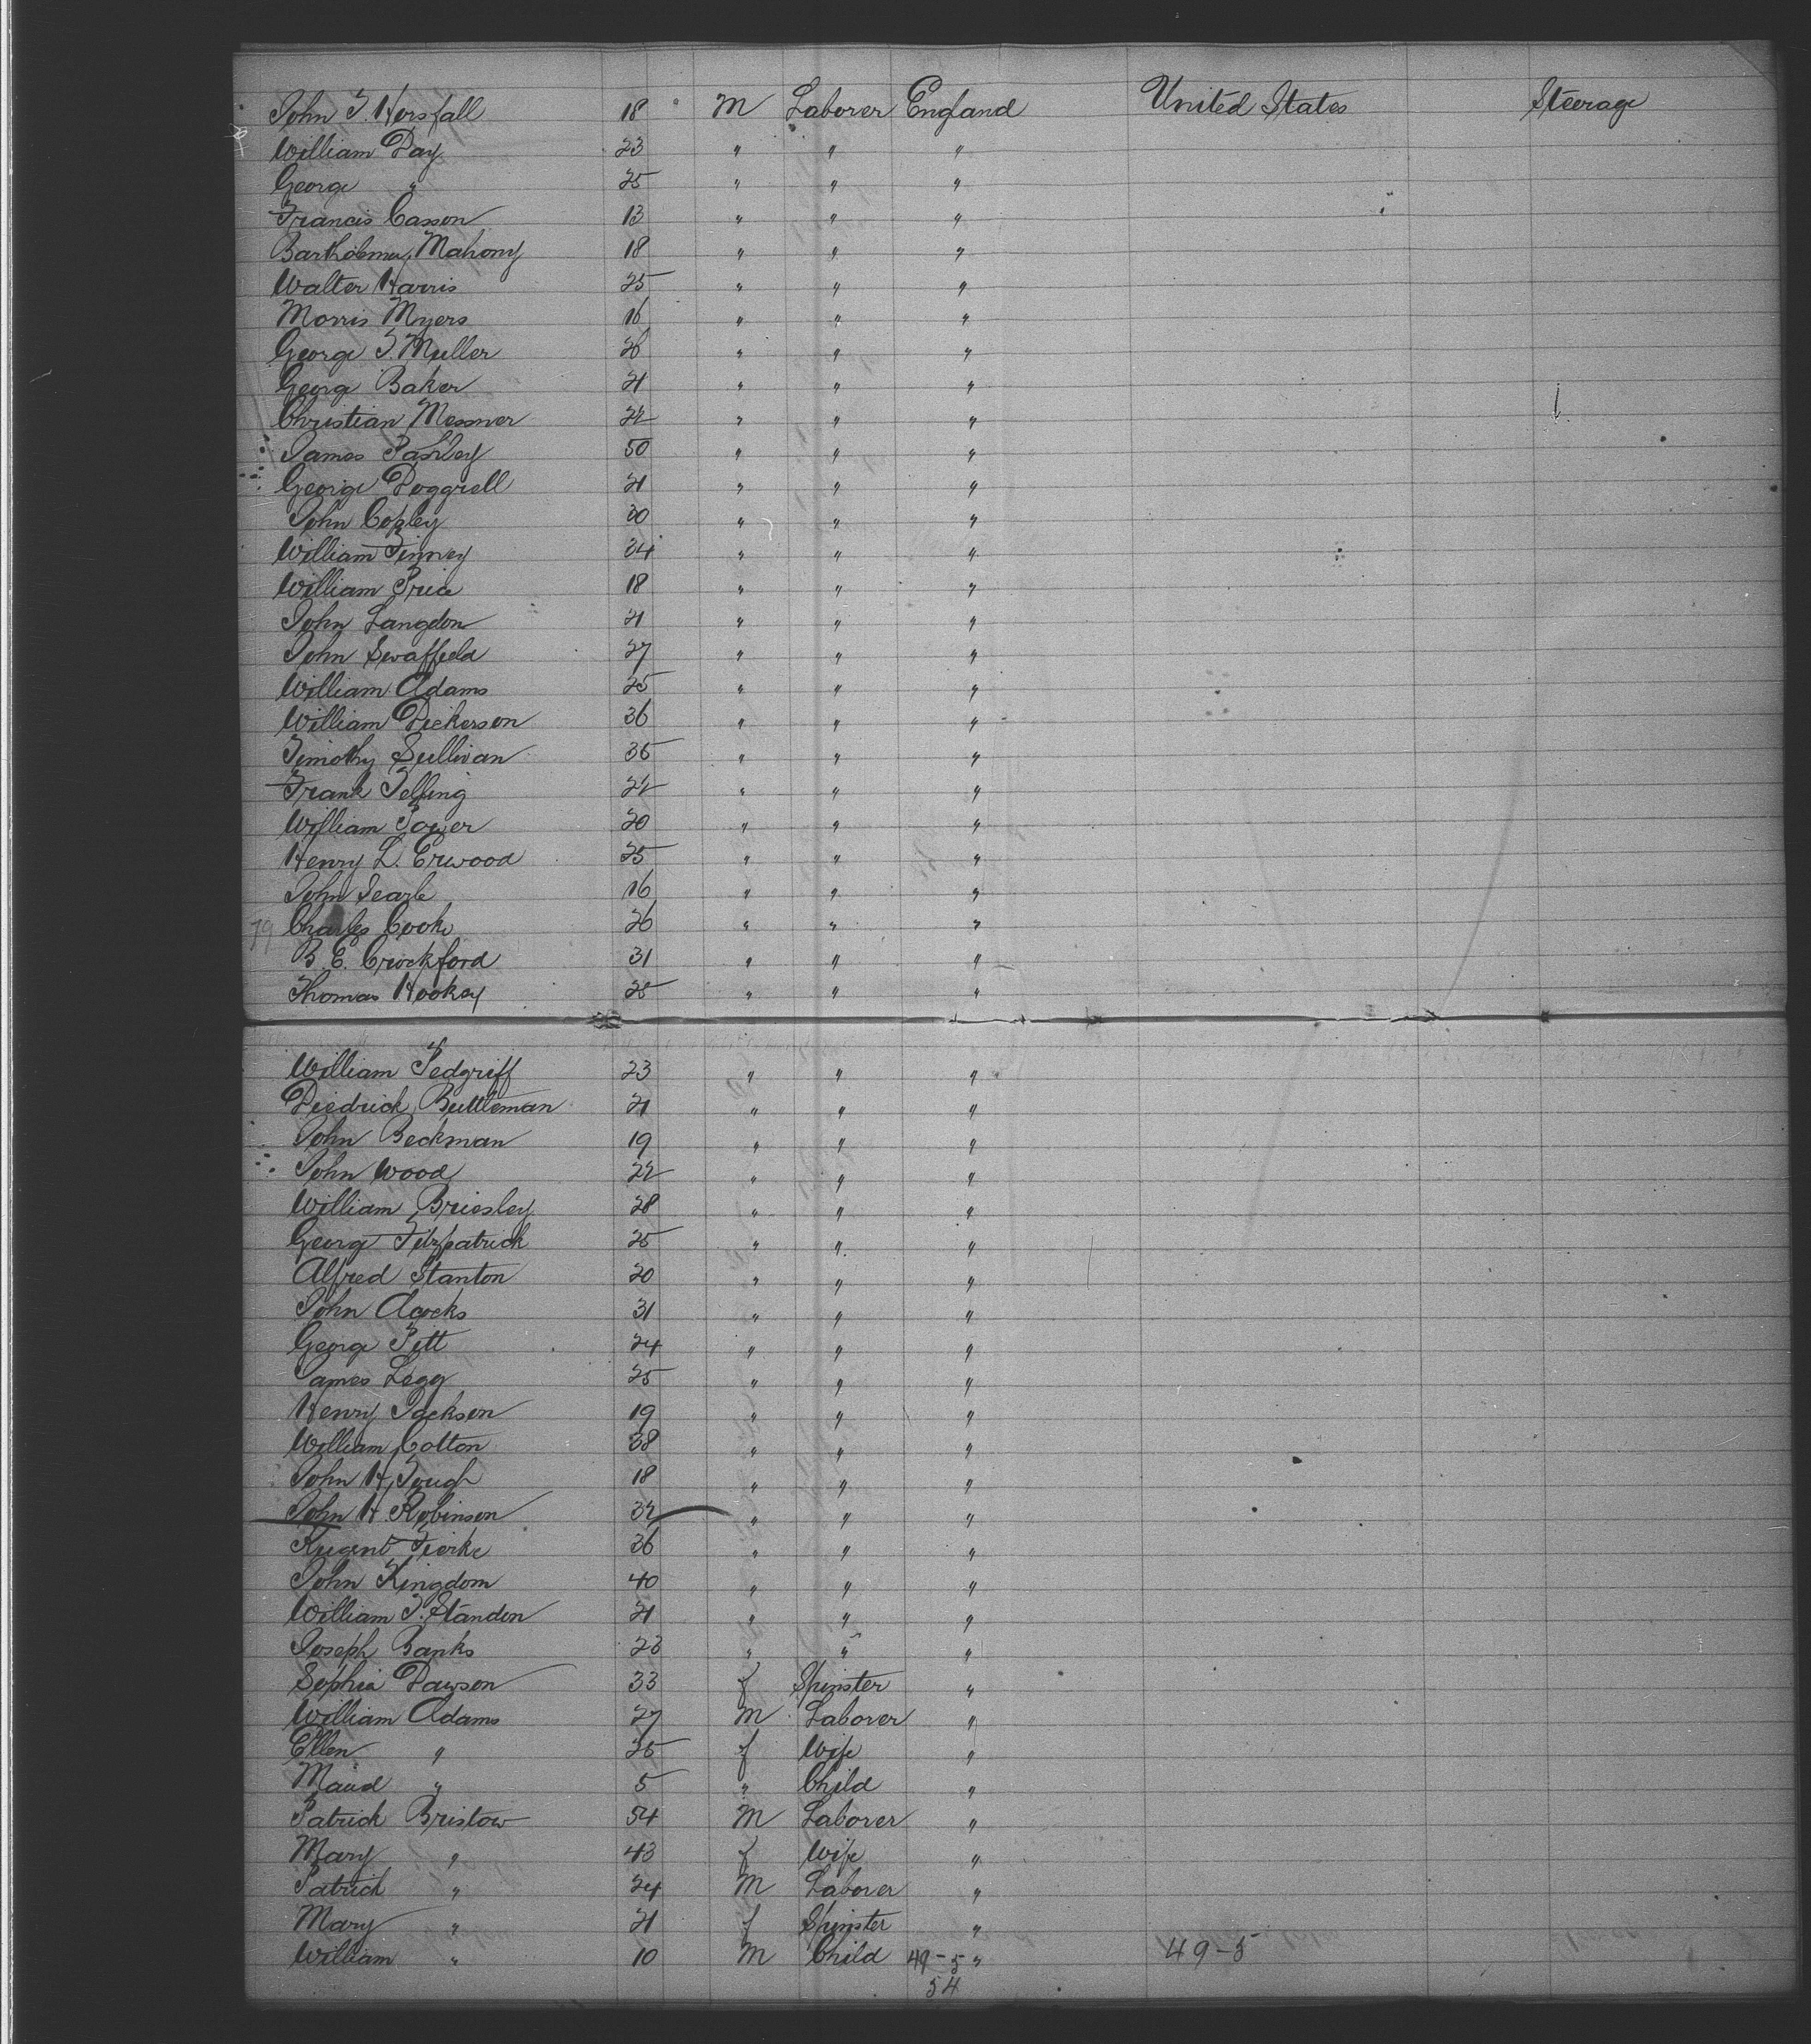 John T. Horsfall 18 M Laborer England United States Steerage
William Day 23 " " "
George " 25 " " "
Francis Casson 13 " " "
Bartholomew Mahony 18 " " "
Walter Harris 25 " " "
Morris Myers 16 " " "
George T. Muller 26 " " "
George Baker 21 " " "
Christian Messmer 22 " " "
James Pashley 50 " " "
George Doggrell 21 " " "
John Copley 30 " " "
William Finney 34 " " "
William Price 18 " " "
John Langdon 21 " " "
John Swaffield 27 " " "
William Adams 25 " " "
William Dickerson 36 " " "
Timothy Sullivan 35 " " "
Frank Telling 22 " " "
William Power 20 " " "
Henry L. Erwood 25 " " "
John Searle 16 " " "
Charles Cooke 26 " " "
B. E. Crockford 31 " " "
Thomas Hookey 25 " " "
William Pedgriff 23 " " "
Diedrick Buttleman 21 " " "
John Beckman 19 " " "
John Wood 22 " " "
William Briesley 28 " " "
George Fitzpatrick 25 " " "
Alfred Stanton 20 " " "
John Alcocks 31 " " "
George Pitt 24 " " "
James Legg 25 " " "
Henry Jackson 19 " " "
William Cotton 38 " " "
John H. Tough 18 " " "
John H Robinson 32 " " "
36 " " "
John Kingdom 40 " " "
William T. Standen 21 " " "
Joseph Banks 23 " " "
Sophia Dawson 33 f Spinster "
William Adams 27 M Laborer "
Ellen " 25 f Wife "
Maud " 5 " Child "
Patrick Bristow 54 M Laborer "
Mary " 43 f Wife "
Patrick " 24 M Laborer "
Mary " 21 f Spinster "
William " 10 M Child 49-5 " 49-5
54